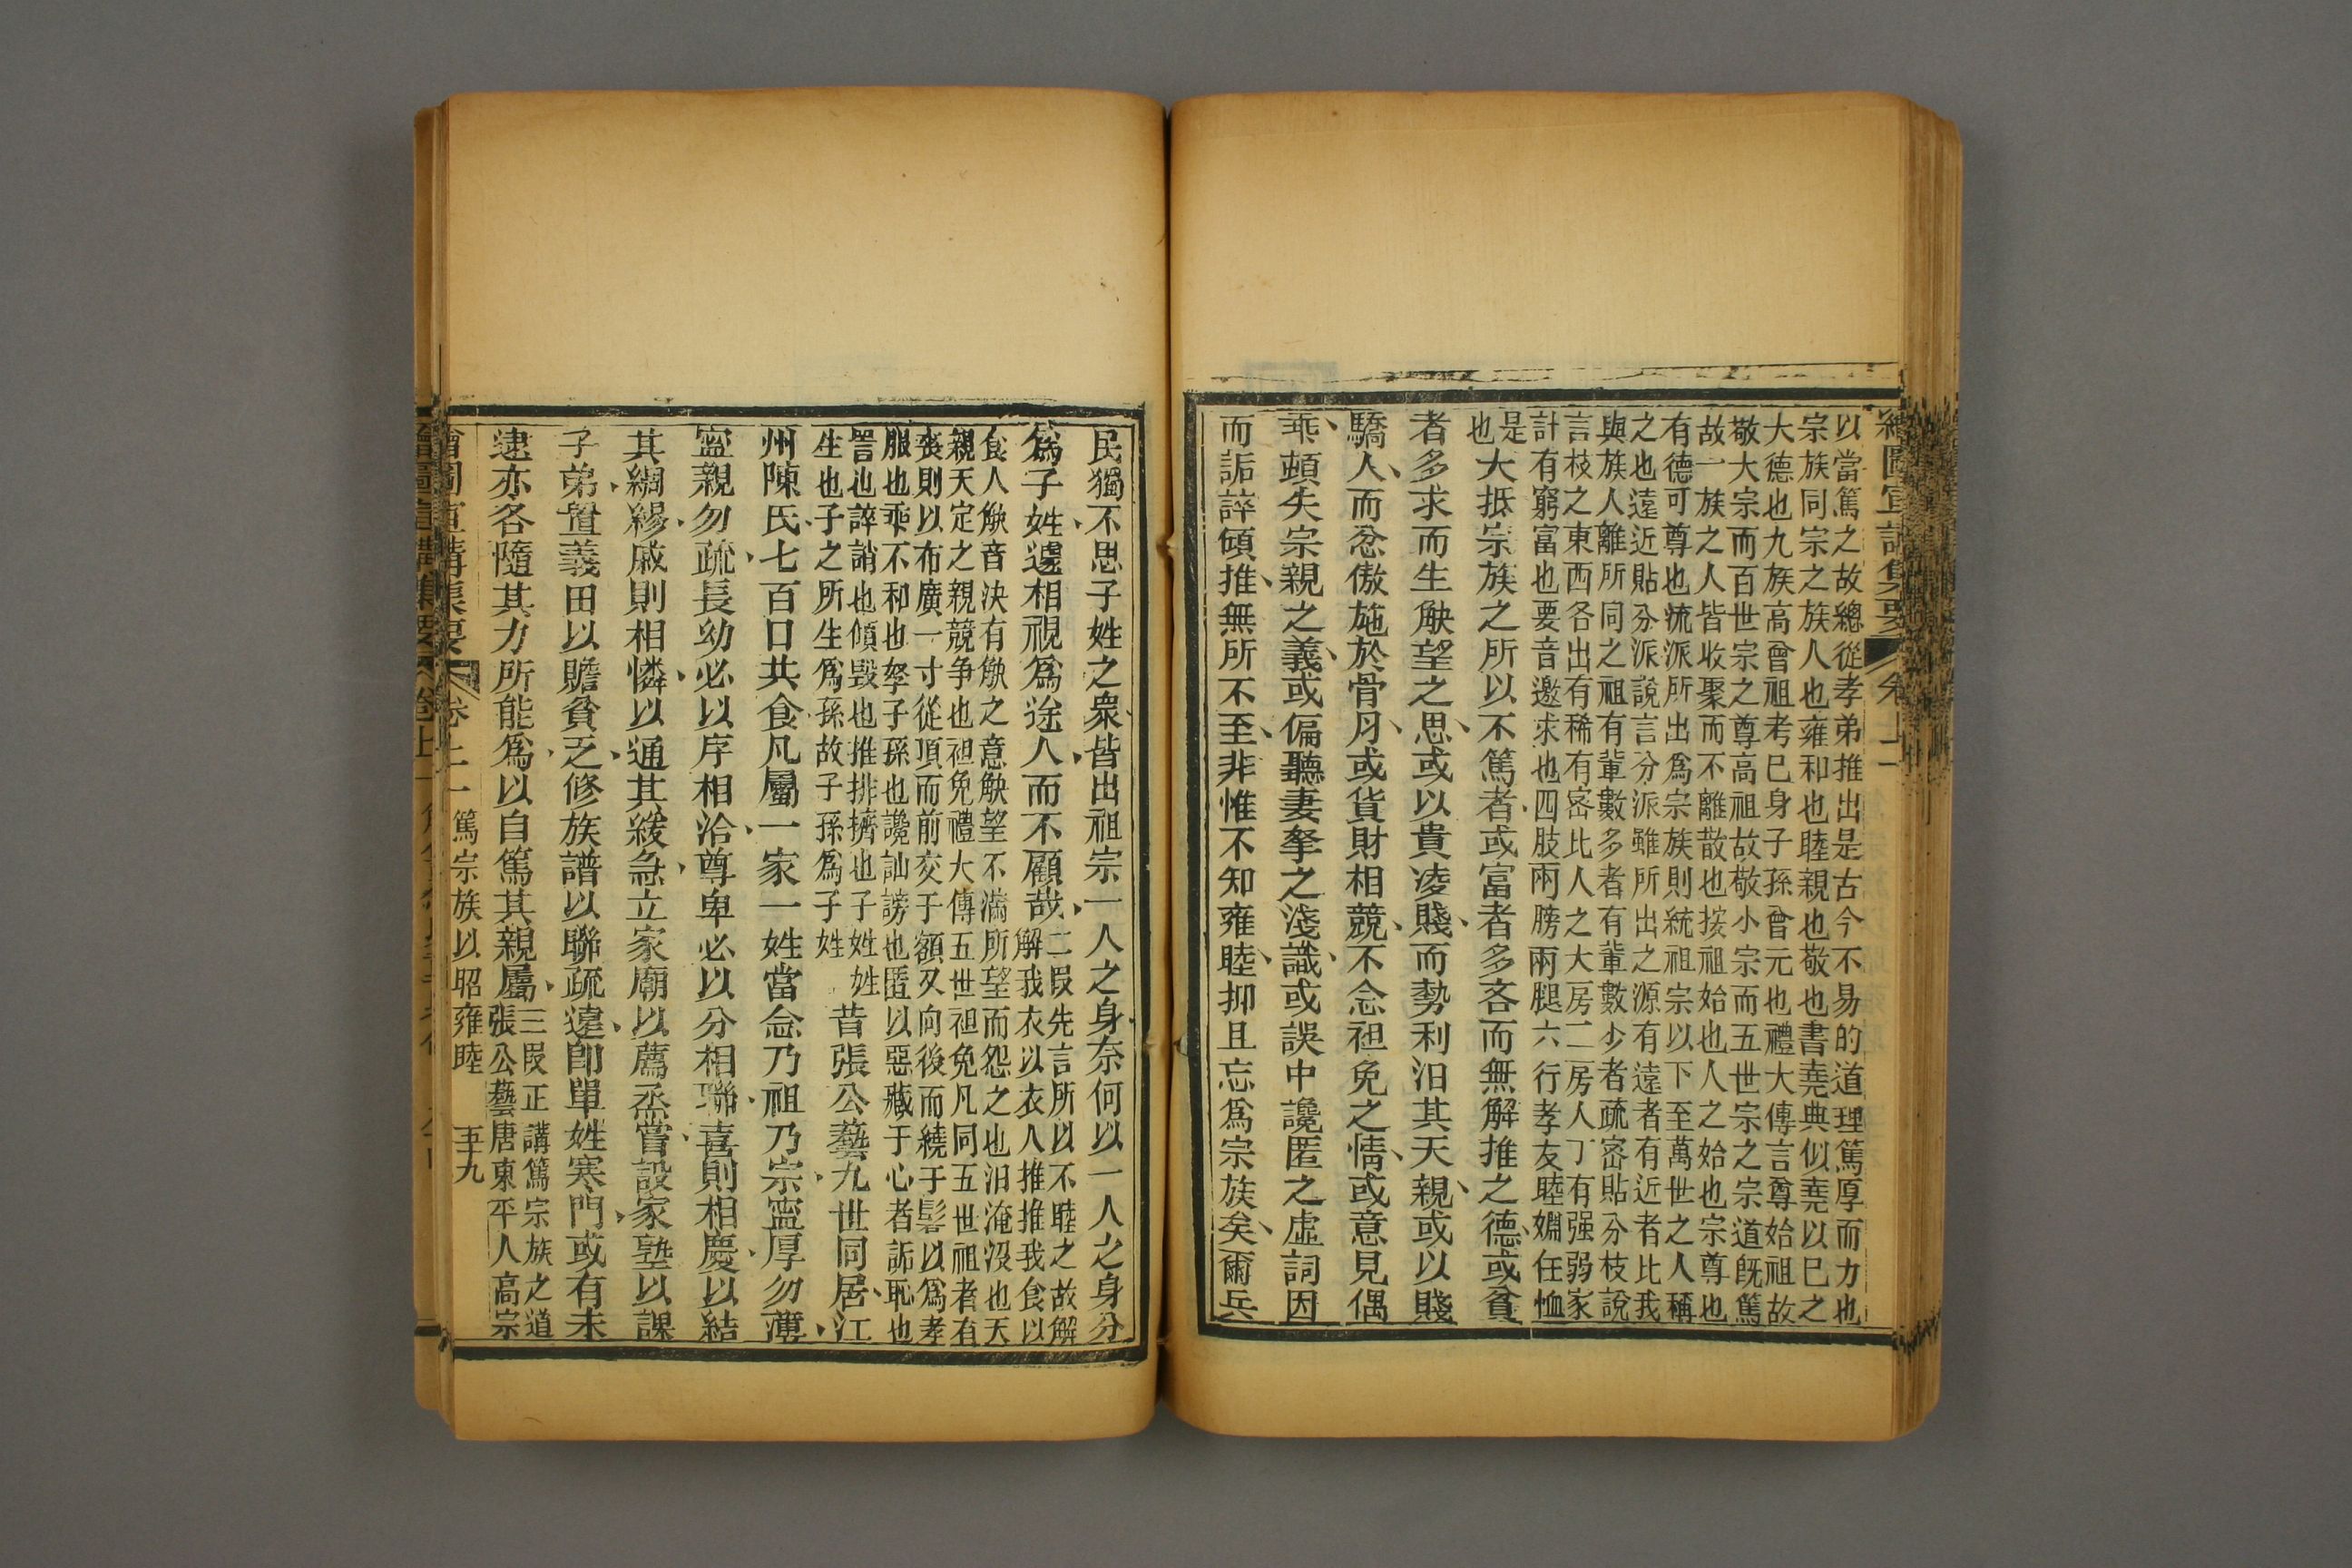 繪圖宣講集要 卷上二
以當篤之故總從孝弟推出是古今不易的道理篤厚而力也
宗族同宗之族人也雍和也睦親也敬也書堯典似堯以巳之
大德也九族高曾祖考巳身子孫曾元也禮大傳言尊始祖故
敬大宗而百世宗之尊高祖故敬小宗而五世宗之宗道旣篤
故一族之人皆收聚而不離散也按祖始也人之始也宗尊也
有德可尊也流派所出爲宗族則統祖宗以下至萬世之人稱
之也遠近貼分派說言分派雖所出之源有遠者有近者比我
與族人離所同之祖有輩數多者有輩數少者疏宻貼分枝說
言枝之東西各出有稀有宻比人之大房二房人丁有强弱家
計有窮富也要音邀求也四肢兩膀兩腿六行孝友睦婣任恤
是也大抵宗族之所以不篤者或富者多吝而無解推之德或貧
者多求而生觖望之思或以貴凌賤而勢利汨其天親或以賤
驕人而忿傲施於骨月或貨財相競不念袒免之情或意見偶
乖頓失宗親之義或偏聽妻孥之淺識或誤中讒匿之虛詞因
而詬誶傾推無所不至非惟不知雍睦抑且忘爲宗族矣爾兵
民獨不思子姓之衆皆出祖宗一人之身奈何以一人之身分
爲子姓遽相視爲途人而不顧哉
二叚先言所以不睦之故解
解我衣以衣人推推我食以
食人觖音決有觖之意觖望不滿所望而怨之也汨淹沒也天
親天定之親競爭也袒免禮大傳五世袒免凡同五世祖者有
喪則以布廣一寸從項而前交于額又向後而繞于髻以爲孝
服也乖不和也孥子孫也讒訕謗也匿以惡藏于心者詬恥也
詈也誶誚也傾毀也推排擠也子姓姓
生也子之所生爲孫故子孫爲子姓
昔張公藝九世同居江
州陳氏七百口共食凡屬一家一姓當念乃祖乃宗寧厚勿薄
寧親勿疏長幼必以序相洽尊卑必以分相聯喜則相慶以結
其綢繆戚則相憐以通其緩急立家廟以薦烝嘗設家塾以課
子弟置義田以贍貧乏修族譜以聯疏遠卽單姓寒門或有未
逮亦各隨其力所能爲以自篤其親屬
三叚正講篤宗族之道
張公藝唐東平人高宗
繪圖宣講集要 卷上一 篤宗族以昭雍睦 五十九
繪圖宣講集要 卷上一